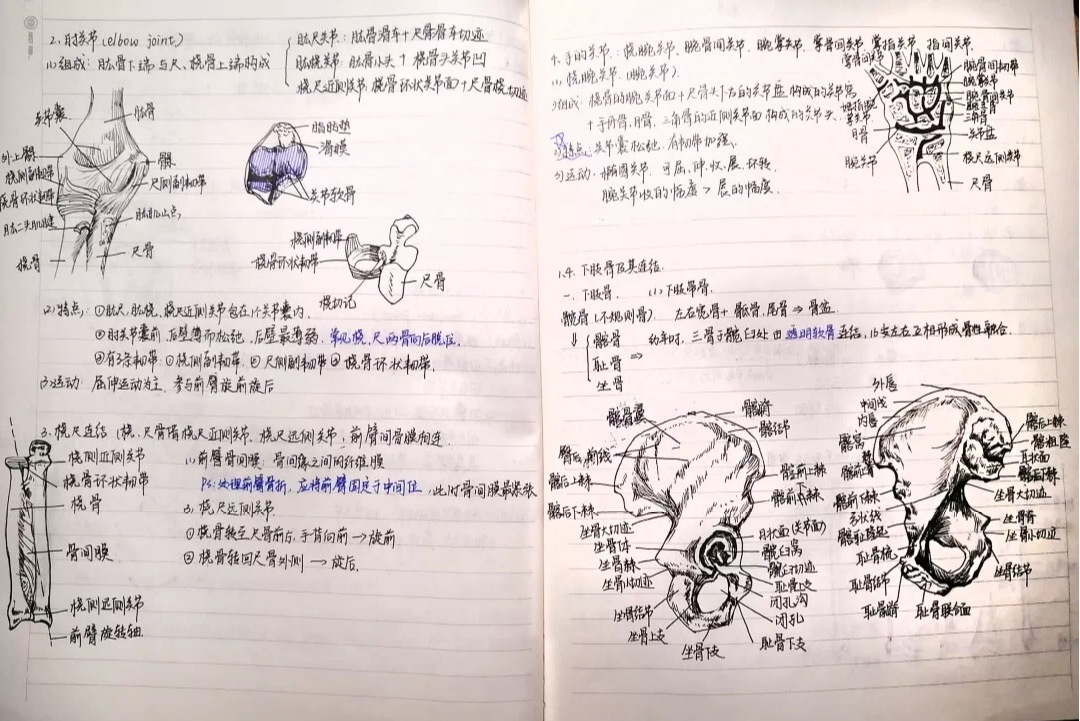 2.肘关节(elbow joint)
肱尺关节:肱骨滑车+尺骨滑车切迹
(1)组成:肱骨下端与尺、桡骨上端构成
肱桡关节:肱骨小头+桡骨头关节凹
桡尺近侧关节:桡骨环状关节面+尺骨桡切迹
关节囊
肱骨
外上髁
桡侧副韧带
桡骨环状韧带
肱二头肌腱
桡骨
髁
尺侧副韧带
肱肌止点
尺骨
脂肪垫
滑膜
关节软骨
桡侧副韧带
桡骨环状韧带
桡切记
尺骨
(2)特点:①肱尺,肱桡,桡尺近侧关节包在1个关节囊内.
②肘关节囊前,后壁薄而松弛,后壁最薄弱,常见桡,尺两骨向后脱位.
③有3条韧带:①桡侧副韧带.②尺侧副韧带③桡骨环状韧带.
(3)运动:屈伸运动为主,参与前臂旋前旋后
3.桡尺连结(桡,尺骨借桡尺近侧关节,桡尺远侧关节,前臂间骨膜相连.
桡尺近侧关节
桡骨环状韧带
桡骨
骨间膜
桡侧远侧关节
前臂旋转轴
(1)前臂骨间膜:骨间缘之间网纤维膜
Ps:处理前臂骨折,应将前臂固定于中间位,此时骨间膜最紧张
②桡骨转回尺骨外侧→旋后.
4.手的关节:桡腕关节、腕骨间关节、腕掌关节、掌骨间关节、掌指关节、指间关节.
(1)桡腕关节(腕关节).
2)组成:桡骨的腕关节面+尺骨头下方的关节盘构成的关节窝
+手舟骨,月骨,三角骨的近侧关节面构成的关节头.
特点:关节囊松弛,有韧带加强、
3)运动:椭圆关节,可屈,伸,收,展,环转
腕关节收的幅度>展的幅度.
掌骨间关节
月骨
腕关节
腕骨间韧带
腕掌关节
腕骨间关节
三角骨
关节盘
桡尺远侧关节
尺骨
1.4.下肢骨及其连结.
一.下肢骨. (1)下肢带骨.
髋骨(不规则骨) 左右髋骨+骶骨,尾骨⇒骨盆
髂骨
耻骨
坐骨
幼年时,三骨于髋臼处由透明软骨连结,16岁左右互相形成骨性融合.
髂骨翼
髂嵴
髂结节
臀后前线
髂后上棘
髂后下棘
坐骨大切迹
坐骨体
坐骨棘
坐骨小切迹
坐骨结节
坐骨上支
坐骨下支
髂前上棘
月状面(关节面)
髋臼窝
髋臼切迹
耻骨上支
闭孔沟
闭孔
耻骨下支
外唇
中间线
内唇
髂窝
髂前下棘
弓状线
髂耻隆起
耻骨梳
耻骨结节
耻骨嵴
耻骨联合面
髂后上棘
髂粗隆
耳状面
髂后下棘
坐骨大切迹
坐骨棘
坐骨小切迹
坐骨结节